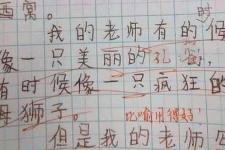 西窝。 时
我的老师有的候
像一只美丽的孔雀,
有时候像一只疯狂的
母狮子。 比喻用得好!
但是我的老师